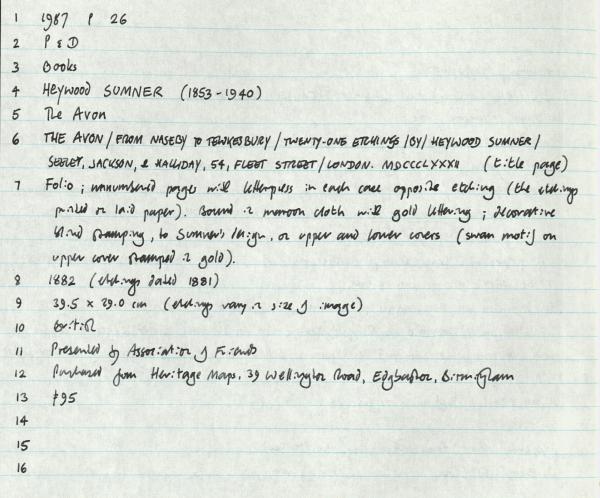 1 1987 P 26
2 P & D
3 Books
4 Heywood SUMNER (1853-1940)
5 The Avon
6 THE AVON / FROM NASEBY TO TEWKESBURY / TWENTY-ONE ETCHINGS / BY / HEYWOOD SUMNER /
SEELEY, JACKSON, & HALLIDAY, 54, FLEET STREET / LONDON. MDCCCLXXXII (title page)
7 Folio ; unnumbered pages with letterpress in each case opposite etching (the etchings
printed on laid paper). Bound in maroon cloth with gold lettering ; decorative
blind stamping, to Sumner's design, on upper and lower covers (swan motif on
upper cover stamped in gold).
8 1882 (etchings dated 1881)
9 39.5 x 29.0 cm (etchings vary in size of image)
10 British
11 Presented by Association of Friends
12 Purchased from Heritage Maps, 39 Wellington Road, Edgbaston, Birmingham
13 £95
14
15
16